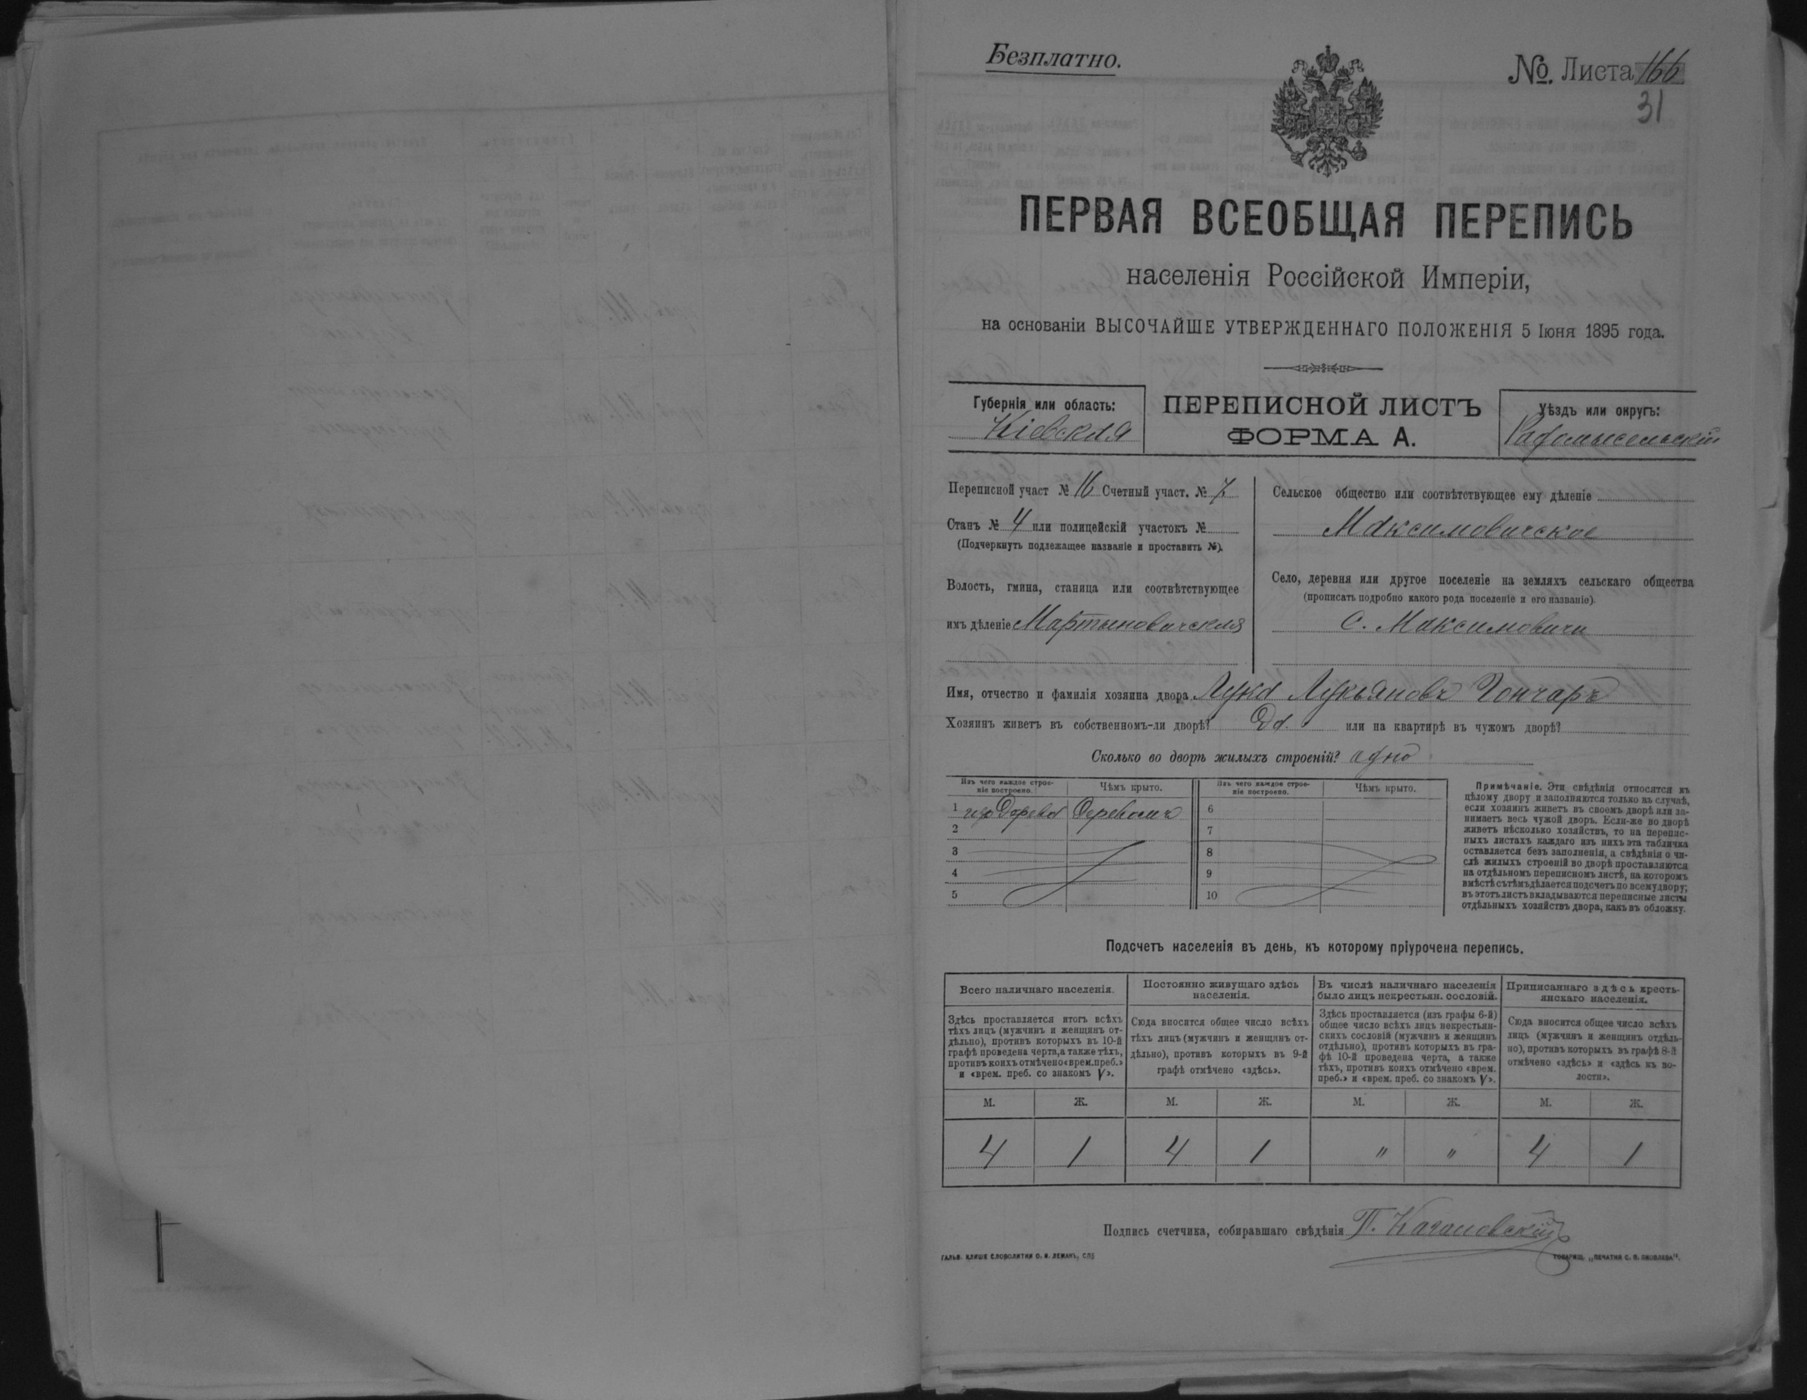 Безплатно.
№. Листа 166
31
ПЕРВАЯ ВСЕОБЩАЯ ПЕРЕПИСЬ
населенія Россійской Имперіи,
на основаніи ВЫСОЧАЙШЕ УТВЕРЖДЕННАГО ПОЛОЖЕНІЯ 5 Іюня 1895 года.
Губернія или область:
Кіевская
ПЕРЕПИСНОЙ ЛИСТЪ
ФОРМА А.
Уѣздъ или округъ:
Радомысльскій
Переписной участ № 16 Счетный участ. № 7
Станъ № 4 или полицейскій участокъ №
(Подчеркнуть подлежащее названіе и проставить №).
Волость, гмина, станица или соотвѣтствующее
имъ дѣленіе Мартыновичская
Сельское общество или соотвѣтствующее ему дѣленіе
Максимовичское
Село, деревня или другое поселеніе на земляхъ сельскаго общества
(прописать подробно какого рода поселеніе и его названіе).
с. Максимовичи
Имя, отчество и фамилія хозяина двора Лука Лукьяновъ Гончаръ
Хозяинъ живетъ въ собственномъ-ли дворѣ? Да или на квартирѣ въ чужомъ дворѣ?
Сколько во дворѣ жилыхъ строеній? одно
Изъ чего каждое строе-
ніе построено.
Чѣмъ крыто.
Изъ чего каждое строе-
ніе построено.
Чѣмъ крыто.
1 изъ Дерева Деревомъ 6
2 7
3 8
4 9
5 10
Примѣчаніе. Эти свѣдѣнія относятся къ
цѣлому двору и заполняются только въ случаѣ,
если хозяинъ живетъ въ своемъ дворѣ или за-
нимаетъ весь чужой дворъ. Если-же во дворѣ
живетъ нѣсколько хозяйствъ, то на перепис-
ныхъ листахъ каждаго изъ нихъ эта табличка
оставляется безъ заполненія, а свѣдѣнія о чи-
слѣ жилыхъ строеній во дворѣ проставляются
на отдѣльномъ переписномъ листѣ, на которомъ
вмѣстѣ съ тѣмъ дѣлается подсчетъ по всему двору;
въ этотъ листъ вкладываются переписные листы
отдѣльныхъ хозяйствъ двора, какъ въ обложку.
Подсчетъ населенія въ день, къ которому пріурочена перепись.
Всего наличнаго населенія.
Здѣсь проставляется итогъ всѣхъ
тѣхъ лицъ (мужчинъ и женщинъ от-
дѣльно), противъ которыхъ въ 10-й
графѣ проведена черта, а также тѣхъ,
противъ коихъ отмѣчено «врем. преб.»
и «врем. преб. со знакомъ V».
Постоянно живущаго здѣсь
населенія.
Сюда вносится общее число всѣхъ
тѣхъ лицъ (мужчинъ и женщинъ от-
дѣльно), противъ которыхъ въ 9-й
графѣ отмѣчено «здѣсь».
Въ числѣ наличнаго населенія
было лицъ некрестьян. сословій.
Здѣсь проставляется (изъ графы 6-й)
общее число всѣхъ лицъ некрестьян-
скихъ сословій (мужчинъ и женщинъ
отдѣльно), противъ которыхъ въ гра-
фѣ 10-й проведена черта, а также
тѣхъ, противъ коихъ отмѣчено «врем.
преб.» и «врем. преб. со знакомъ V».
Приписаннаго здѣсь кресть-
янскаго населенія.
Сюда вносится общее число всѣхъ
лицъ (мужчинъ и женщинъ отдѣль-
но), противъ которыхъ въ графѣ 8-й
отмѣчено «здѣсь» и «здѣсь въ во-
лости».
М. Ж. М. Ж. М. Ж. М. Ж.
4 1 4 1 " " 4 1
Подпись счетчика, собиравшаго свѣдѣнія П. Качановскій
ГАЛЬВ. КЛИШЕ СЛОВОЛИТНИ О. И. ЛЕМАНЪ, СПБ
ТОВАРИЩ. „ПЕЧАТНЯ С. П. ЯКОВЛЕВА".